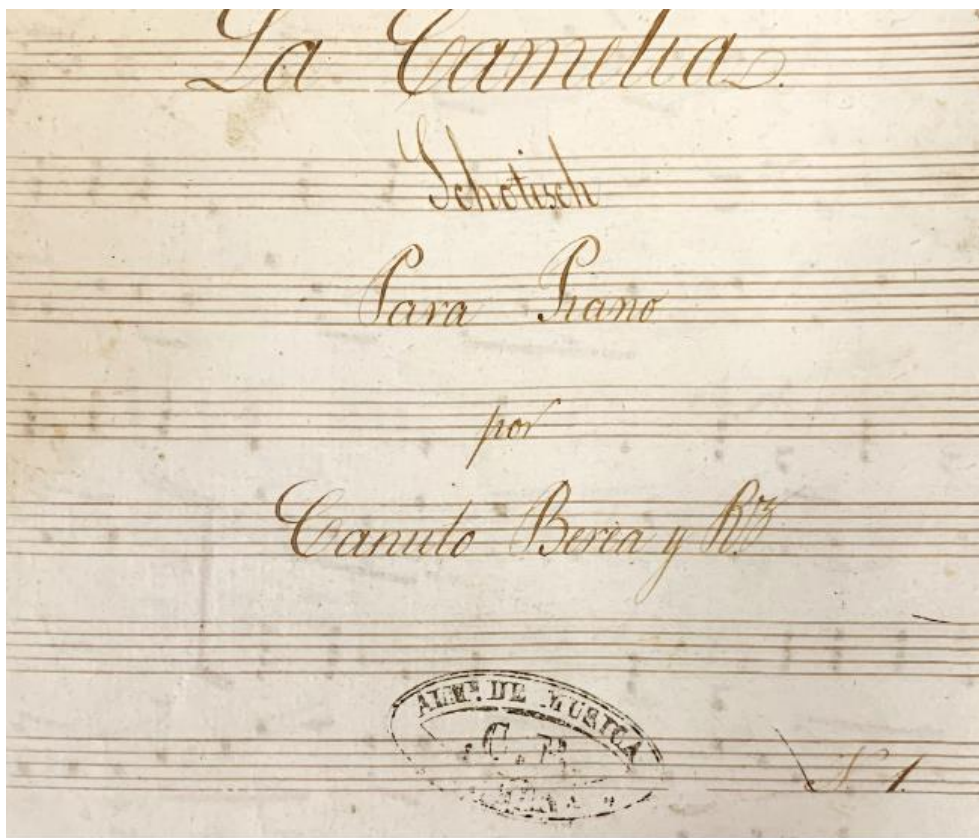 La Camelia.
Schotisch
Para Piano
por
Canuto Berea y R.z
ALMN. DE MUSICA
C. B.